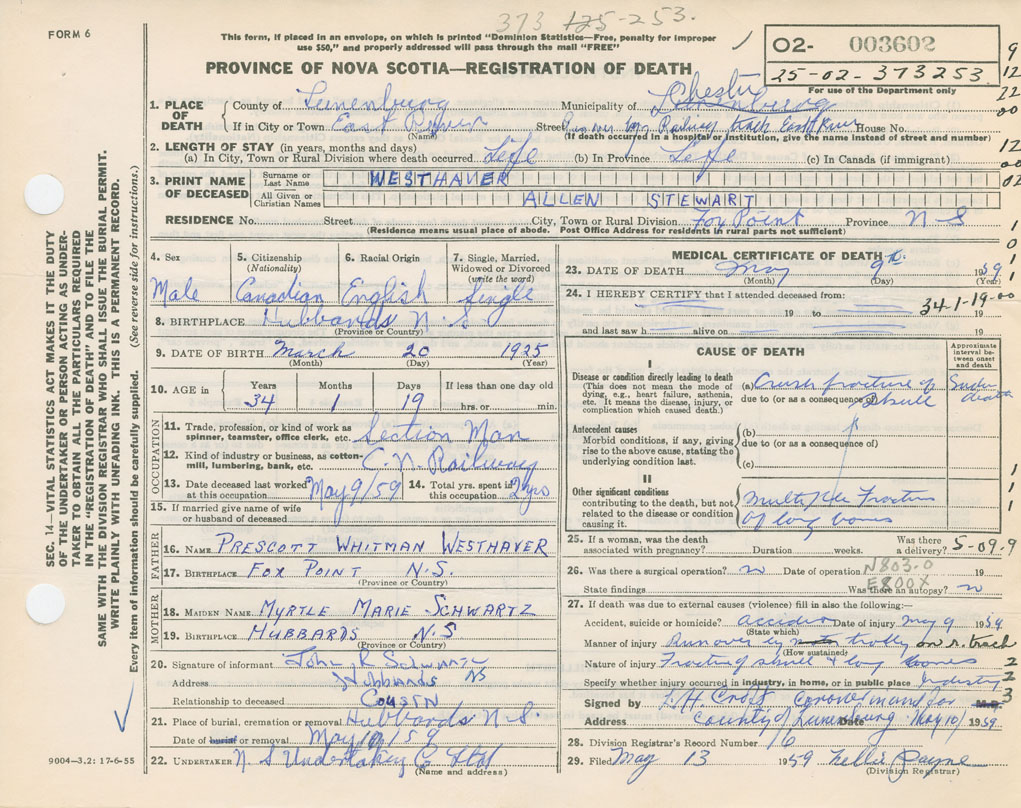 373 125-253.
FORM 6
This form, if placed in an envelope, on which is printed "Dominion Statistics—Free, penalty for improper
use $50," and properly addressed will pass through the mail "FREE"
02- 003602
25-02-373253
For use of the Department only
PROVINCE OF NOVA SCOTIA—REGISTRATION OF DEATH
9
12
22
00
12
00
02
1
0
1
1
1
1
1
2
2
3
SEC. 14—VITAL STATISTICS ACT MAKES IT THE DUTY
OF THE UNDERTAKER OR PERSON ACTING AS UNDER-
TAKER TO OBTAIN ALL THE PARTICULARS REQUIRED
IN THE "REGISTRATION OF DEATH" AND TO FILE THE
SAME WITH THE DIVISION REGISTRAR WHO SHALL ISSUE THE BURIAL PERMIT.
WRITE PLAINLY WITH UNFADING INK. THIS IS A PERMANENT RECORD.
Every item of information should be carefully supplied. (See reverse side for instructions.)
1. PLACE OF DEATH County of Lunenburg Municipality of Chester Lunenburg
If in City or Town East River Street Run over by Railway track East River House No.
(Name) (If death occurred in a hospital or institution, give the name instead of street and number)
2. LENGTH OF STAY (in years, months and days)
(a) In City, Town or Rural Division where death occurred Life (b) In Province Life (c) In Canada (if immigrant)
3. PRINT NAME OF DECEASED Surname or Last Name WESTHAVER
All Given or Christian Names ALLEN STEWART
RESIDENCE No. Street City, Town or Rural Division Fox Point Province N S
(Residence means usual place of abode. Post Office Address for residents in rural parts not sufficient)
4. Sex 5. Citizenship (Nationality) 6. Racial Origin 7. Single, Married, Widowed or Divorced (write the word)
Male Canadian English Single
8. BIRTHPLACE Hubbards N.S
(Province or Country)
9. DATE OF BIRTH March 20 1925
(Month) (Day) (Year)
10. AGE in Years Months Days If less than one day old
34 1 19 hrs. or min.
OCCUPATION
11. Trade, profession, or kind of work as
spinner, teamster, office clerk, etc. Section Man
12. Kind of industry or business, as cotton-
mill, lumbering, bank, etc. C.N. Railway
13. Date deceased last worked at this occupation May 9/59 14. Total yrs. spent in this occupation 2 yrs
15. If married give name of wife
or husband of deceased
FATHER
16. NAME PRESCOTT WHITMAN WESTHAVER
17. BIRTHPLACE FOX POINT N.S.
(Province or Country)
MOTHER
18. MAIDEN NAME MYRTLE MARIE SCHWARTZ
19. BIRTHPLACE HUBBARDS N.S
(Province or Country)
20. Signature of informant John R Schwartz
Address Hubbards NS
Relationship to deceased COUSIN
21. Place of burial, cremation or removal Hubbards N.S.
Date of burial or removal May 10/59
22. UNDERTAKER N. S Undertaking Co Ltd
(Name and address)
9004—3.2: 17-6-55
MEDICAL CERTIFICATE OF DEATH
23. DATE OF DEATH May 9th 1959
(Month) (Day) (Year)
24. I HEREBY CERTIFY that I attended deceased from: 34-1-19-00
19 to 19
and last saw h alive on 19
CAUSE OF DEATH
Approximate interval between onset and death
I
Disease or condition directly leading to death
(This does not mean the mode of
dying, e.g., heart failure, asthenia,
etc. It means the disease, injury, or
complication which caused death.)
(a) Crush fracture of skull Sudden death
due to (or as a consequence of)
Antecedent causes
Morbid conditions, if any, giving
rise to the above cause, stating the
underlying condition last.
(b)
due to (or as a consequence of)
(c)
II
Other significant conditions
contributing to the death, but not
related to the disease or condition
causing it.
Multiple Fracture
of long bones
25. If a woman, was the death
associated with pregnancy? Duration weeks. Was there a delivery? 5-09-9
26. Was there a surgical operation? no Date of operation N803.0 19
State findings E800X Was there an autopsy? no
27. If death was due to external causes (violence) fill in also the following:—
Accident, suicide or homicide? accident Date of injury May 9 1959
(State which)
Manner of injury Run over by trolly on r. track
(How sustained)
Nature of injury Fracture of skull & long bones
Specify whether injury occurred in industry, in home, or in public place Industry
Signed by L.H. Croft coroner in and for M.D.
Address County of Lunenburg Date May 10/ 1959.
28. Division Registrar's Record Number 16
29. Filed May 13 1959 Nellie Payne
(Division Registrar)